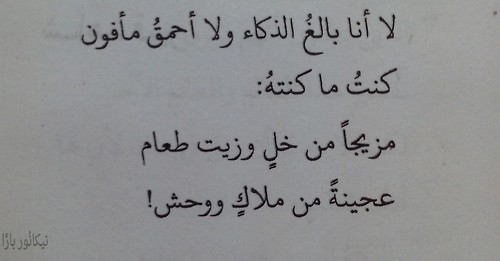 لا أنا بالغُ الذكاء ولا أحمقُ مأفون
كنتُ ما كنتهُ:
مزيجاً من خلٍ وزيت طعام
عجينةً من ملاكٍ ووحش!
نيكانور بارّا